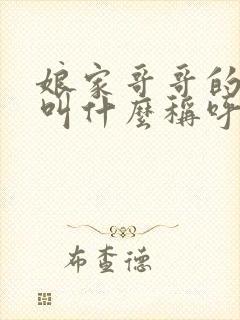 娘家哥哥的
叫什麼稱呼
布查德